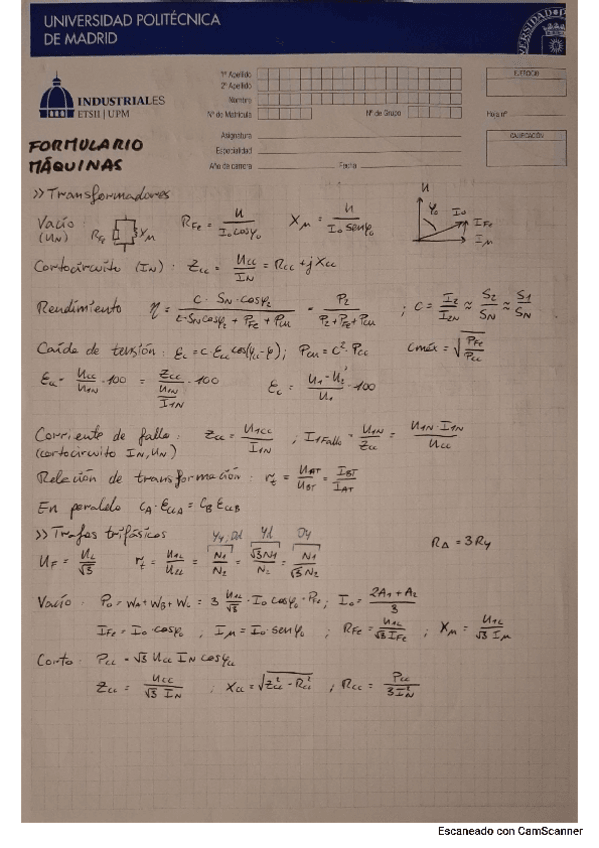 UNIVERSIDAD POLITÉCNICA
DE MADRID
INDUSTRIALES
ETSII | UPM
1º Apellido
2º Apellido
Nombre
Nº de Matrícula
Nº de Grupo
Hoja nº
Asignatura
Especialidad
Año de carrera
Fecha
CALIFICACIÓN
FORMULARIO
MÁQUINAS
>> Transformadores
Vacío : (UN) RFe Xμ RFe = U / I0 cosφ0 Xμ = U / I0 senφ0 U φ0 I0 IFe Iμ
Cortocircuito (IN) : Zcc = Ucc / IN = Rcc + j Xcc
Rendimiento η = C · SN cosφ2 / C · SN cosφ2 + PFe + PCu = P2 / P2 + PFe + PCu ; C = I2 / I2N ≈ S2 / SN ≈ S1 / SN
Caída de tensión : εc = C · εcc cos(φcc - φ) ; PCu = C² · Pcc Cmáx = √(PFe / Pcc)
εcc = Ucc / U1N · 100 = Zcc / (U1N / I1N) · 100 εc = U1 - U2' / U1 · 100
Corriente de fallo : Zcc = U1cc / I1N ; I1Fallo = U1N / Zcc = U1N · I1N / Ucc
(cortocircuito IN, UN)
Relación de transformación : rt = UAT / UBT = IBT / IAT
En paralelo CA · εccA = CB εccB
>> Trafos trifásicos Yy, Dd Yd Dy R△ = 3 RY
UF = UL / √3 rt = U1L / U2L = N1 / N2 = √3 N1 / N2 = N1 / √3 N2
Vacío : P0 = WA + WB + WC = 3 U1L / √3 · I0 cosφ0 = PFe ; I0 = 2A1 + A2 / 3
IFe = I0 · cosφ0 ; Iμ = I0 · senφ0 ; RFe = U1L / √3 IFe ; Xμ = U1L / √3 Iμ
Corto : Pcc = √3 Ucc IN cosφcc
Zcc = Ucc / √3 IN ; Xcc = √(Zcc² - Rcc²) ; Rcc = Pcc / 3 IN²
Escaneado con CamScanner